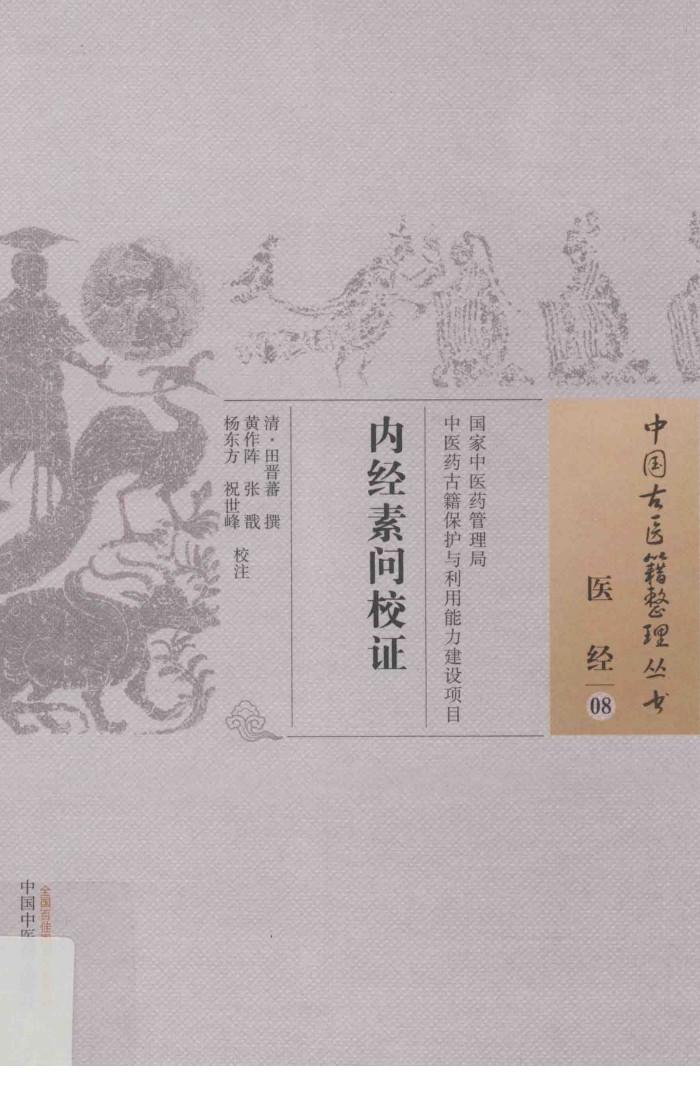 中国古医籍整理丛书
医经
08
国家中医药管理局
中医药古籍保护与利用能力建设项目
内经素问校证
清·田晋蕃 撰
黄作阵 张戬
杨东方 祝世峰 校注
全国百佳
中国中医